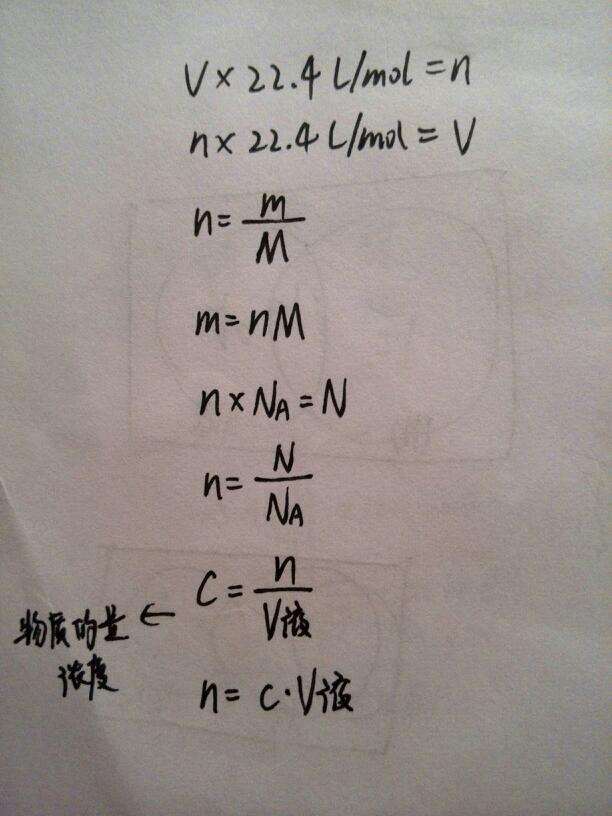 V × 22.4 L/mol = n
n × 22.4 L/mol = V
n = m/M
m = nM
n × NA = N
n = N/NA
物质的量浓度 ← C = n/V液
n = c·V液